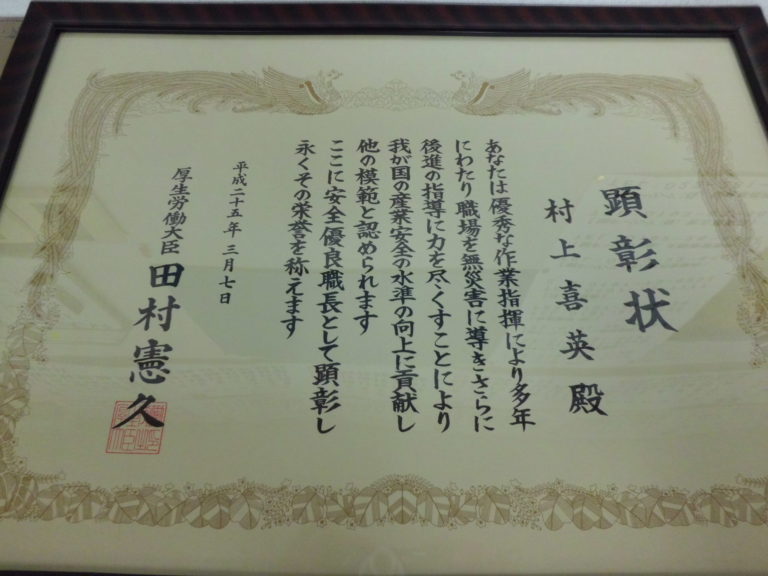 顕彰状
村上喜英殿
あなたは優秀な作業指揮により多年
にわたり職場を無災害に導きさらに
後進の指導に力を尽くすことにより
我が国の産業安全の水準の向上に貢献し
他の模範と認められます
ここに安全優良職長として顕彰し
永くその栄誉を称えます
平成二十五年三月七日
厚生労働大臣 田村憲久